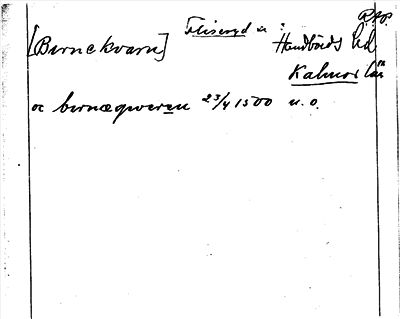 Pap.
[Burnekvarn] Fliseryd sn ? Handbörds hd
Kalmar län
oc burnæqweren 23/4 1500 u.o.